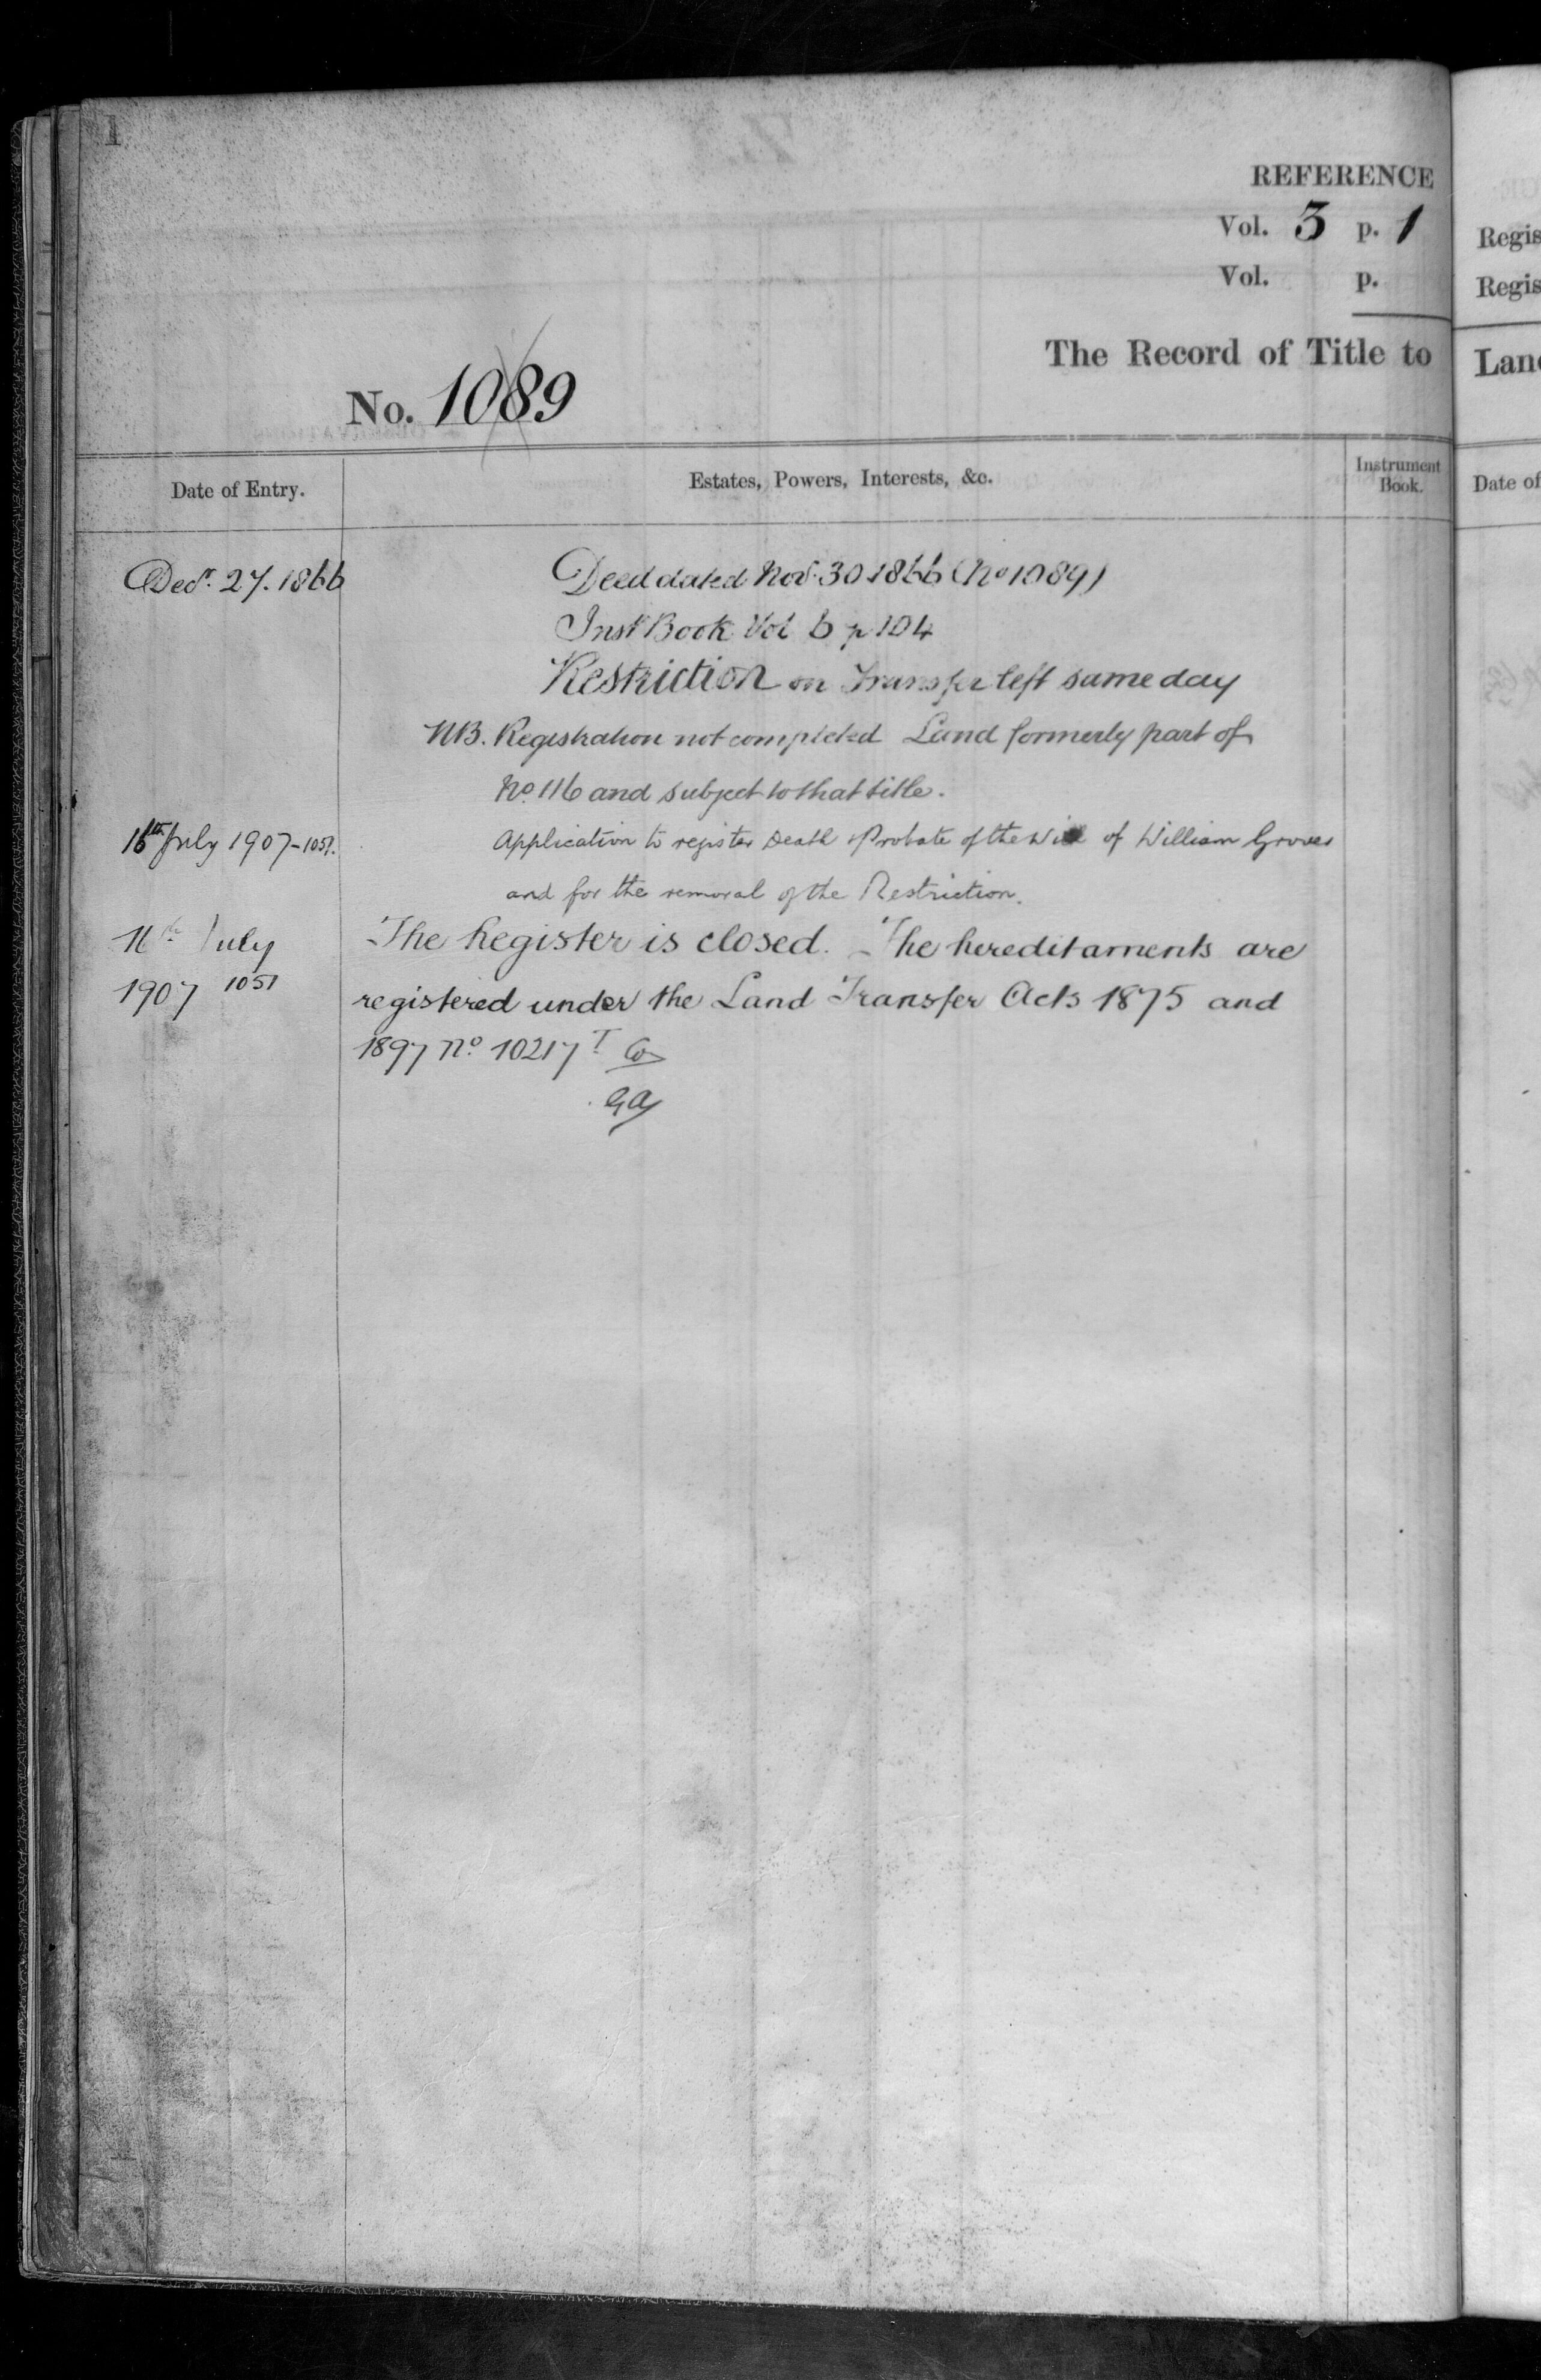 1
REFERENCE
Vol. 3 p. 1
Vol. p.
The Record of Title to
No. 1089
Date of Entry.
Estates, Powers, Interests, &c.
Instrument Book.
Decr. 27. 1866
Deed dated Novr. 30 1866 (No 1089)
Inst Book Vol 6 p 104
Restriction on Transfer left same day
NB. Registration not completed Land formerly part of
No. 116 and subject to that title.
16th July 1907-1051.
Application to register Death & Probate of the Will of William Groves
and for the removal of the Restriction.
16th July
1907 1051
The Register is closed. The hereditaments are
registered under the Land Transfer Acts 1875 and
1897 No. 10217
Regis
Regis
Land
Date of